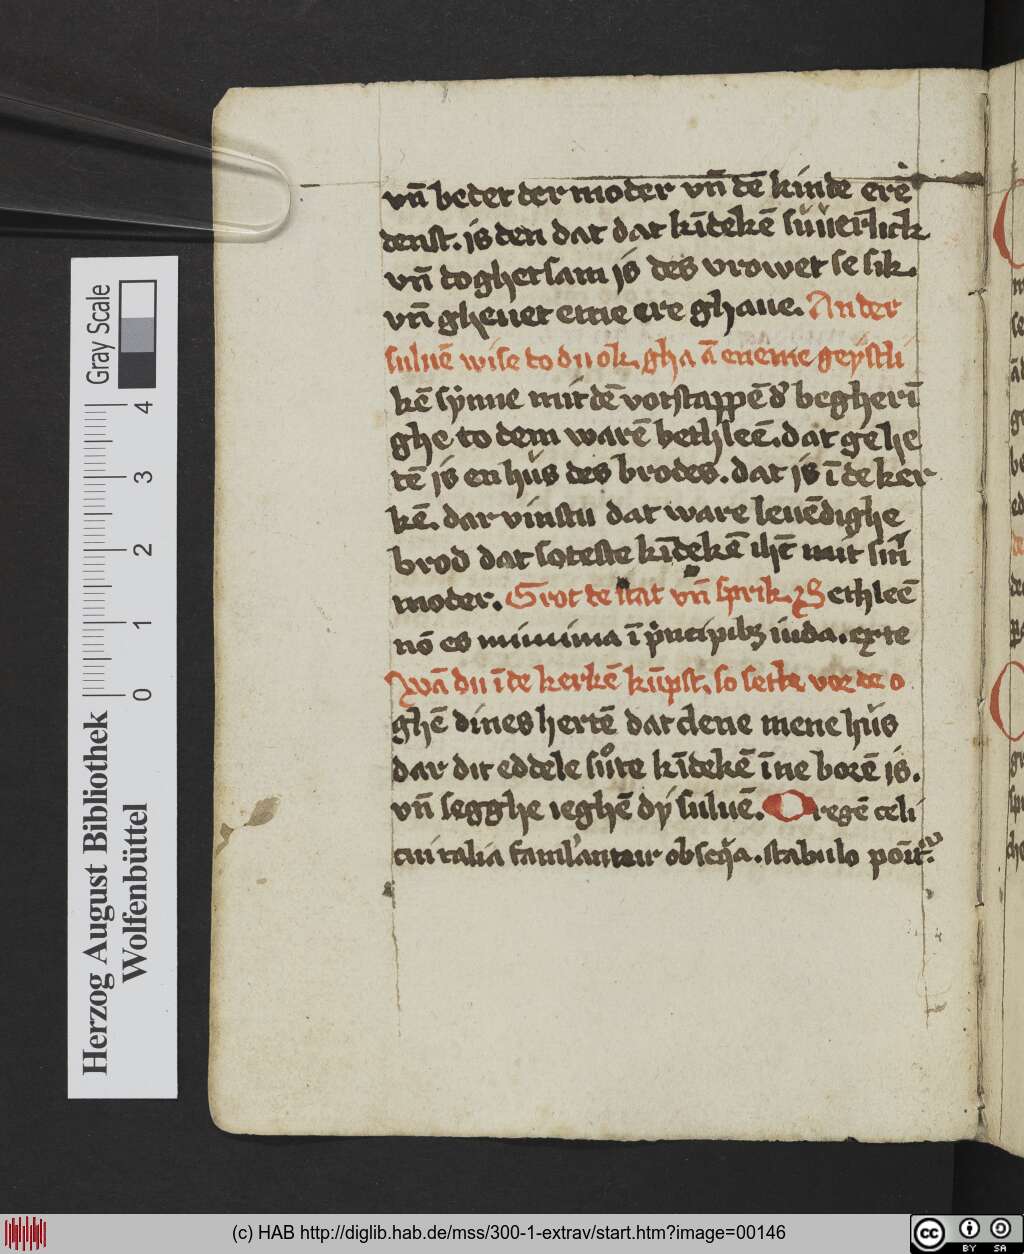 vn̄ bedet der moder vn̄ dē kinde ere
denst. is den dat dat kīdekē suuerlick
vn̄ doghetsam is des vrowet se sik.
vn̄ gheuet eme ere ghaue. An der
suluē wise to du ok. gha ā eneme geystli
kē synne mit dē votstappē d' begherī
ghe to dem warē bethleē. dat gehe
tē is en hus des brodes. dat is ī de ker
kē. dar vinstu dat ware leuēdighe
brod dat soteste kīdekē ihc̄ mit sīn
moder. Grot de stat vn̄ sprik. Bethleē
nō es minima ī p̄ncipibꝫ iuda. ex te
Wā du ī de kerkē kūpst. so sette vor de o
ghē dines hertē dat clene mene hus
dar dit eddele sute kīdekē īne borē is.
vn̄ segghe ieghē dy suluē. O regē celi
cui talia famulantur obseqa. stabulo poīt'
Gray Scale
0 1 2 3 4
Herzog August Bibliothek
Wolfenbüttel
(c) HAB http://diglib.hab.de/mss/300-1-extrav/start.htm?image=00146
cc BY SA